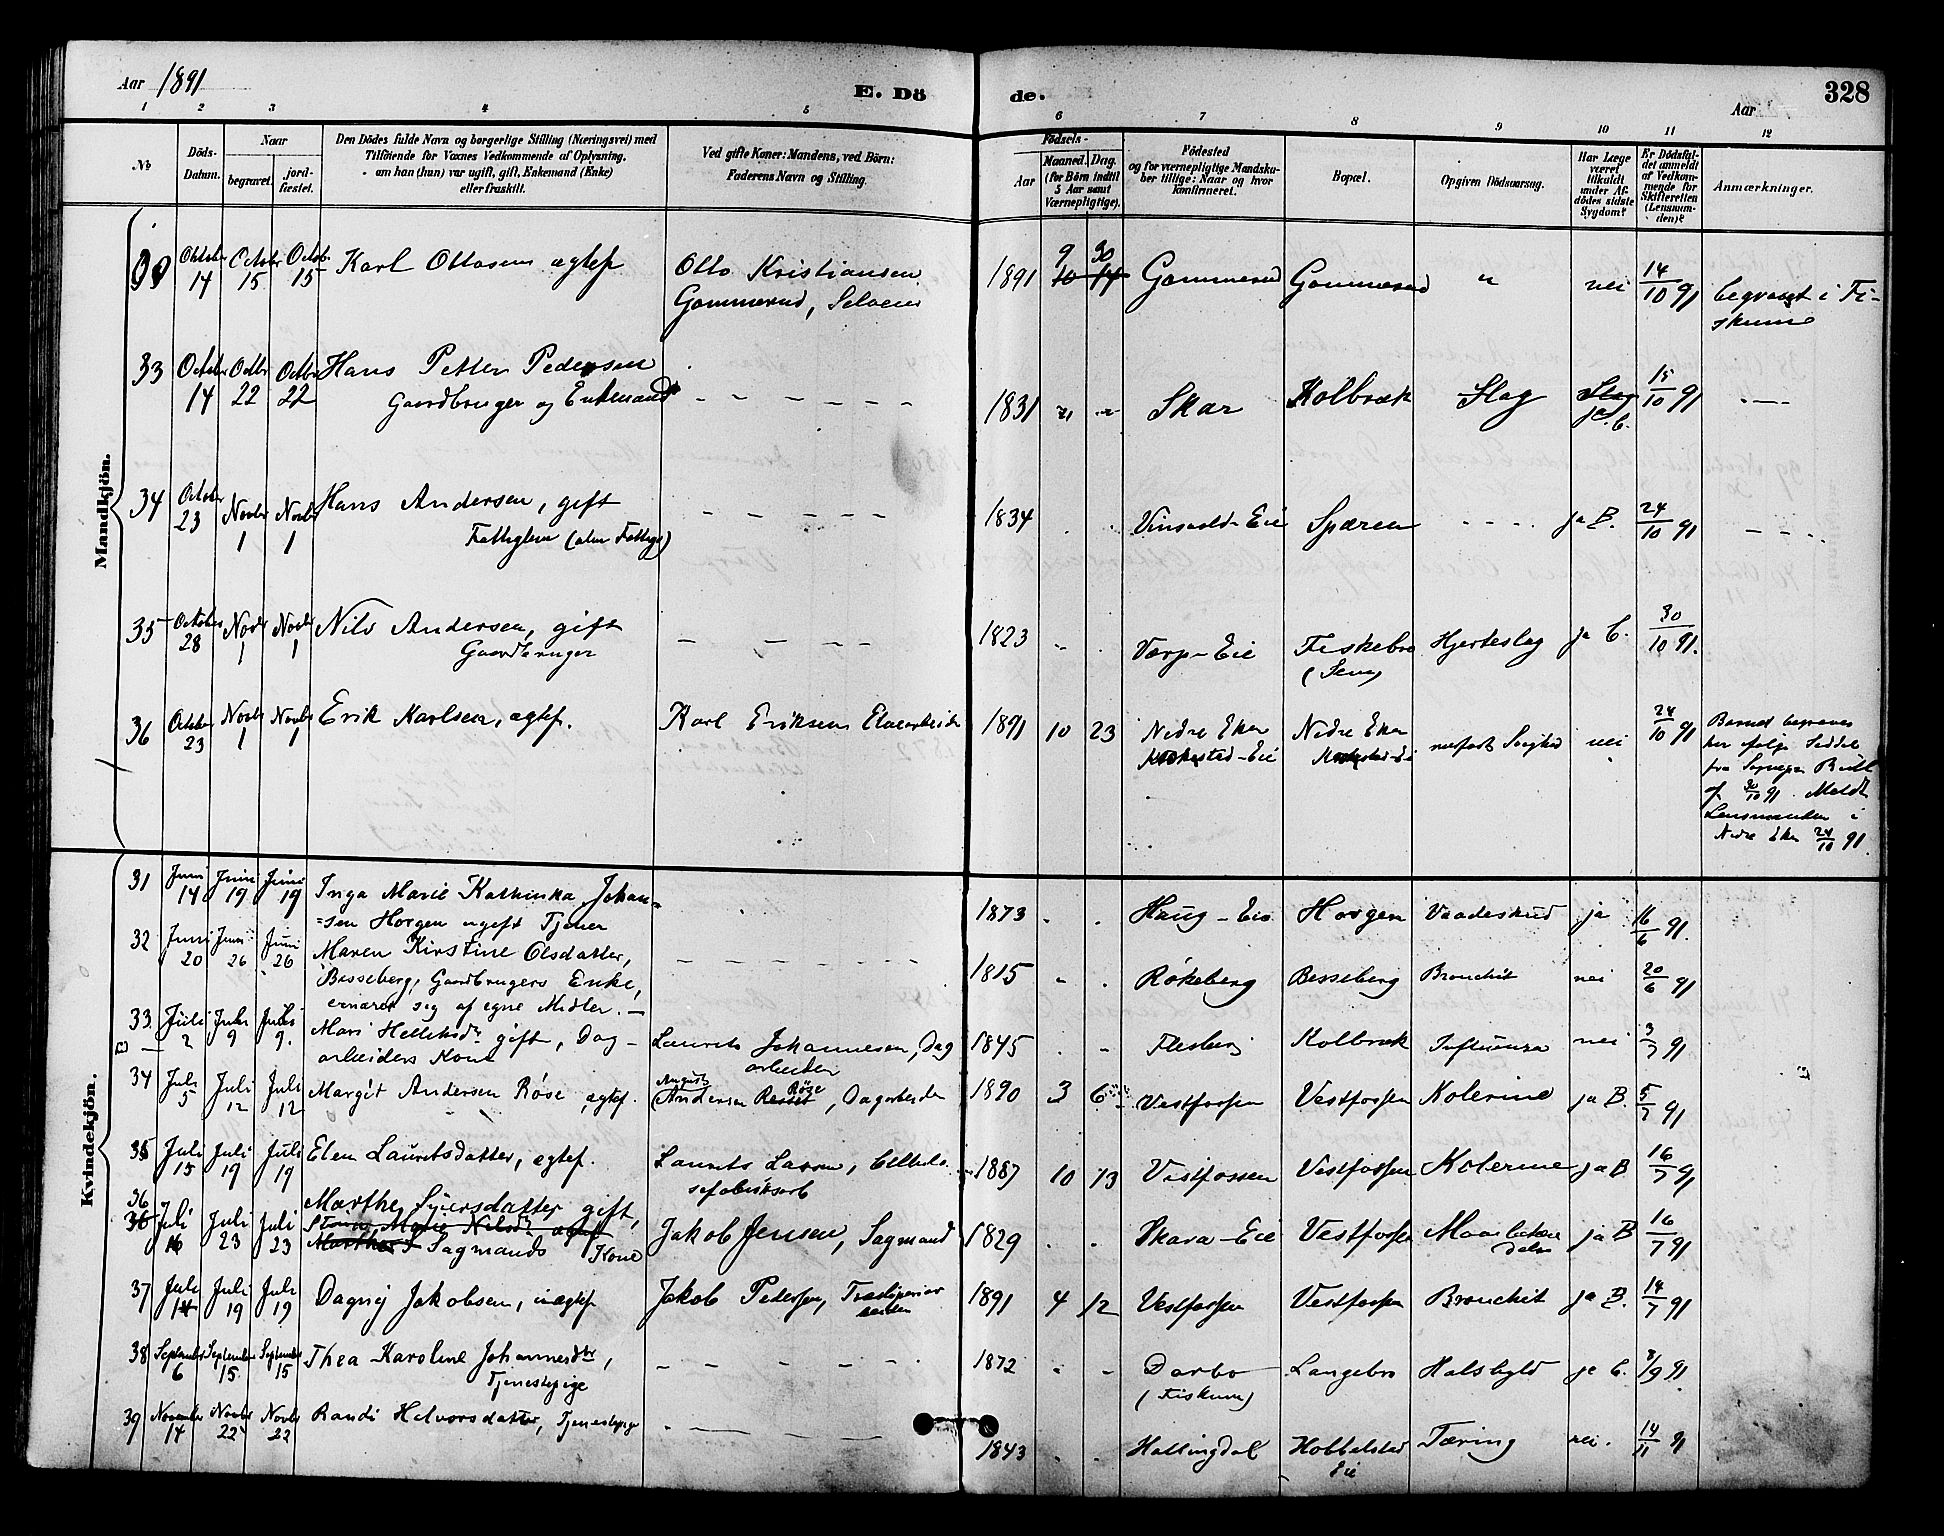 Aar 1891
E. Döde.
Aar
328
1 2 3 4 5 6 7 8 9 10 11 12
No
Döds-Datum.
Naar
begravet.
jordfæstet.
Den Dödes fulde Navn og borgerlige Stilling (Næringsvei) med
Tilföiende for Voxnes Vedkommende af Oplysning,
om han (hun) var ugift, gift, Enkemand (Enke)
eller fraskilt.
Ved gifte Koner: Mandens, ved Börn:
Faderens Navn og Stilling.
Födsels-
Aar
Maaned. Dag.
(for Börn indtil
5 Aar samt
Værnepligtige).
Födested
og for værnepligtige Mandskaber tillige: Naar og hvor
konfirmeret.
Bopæl.
Opgiven Dödsaarsag.
Har Læge
været
tilkaldt
under Afdödes sidste
Sygdom?
Er Dödsfaldet anmeldt
af Vedkommende for
Skifteretten
(Lensmanden)?
Anmærkninger.
Mandkjön.
Octobr 14 Octobr 15 Octobr 15 Karl Ottosen ægtef Otto Kristiansen
Gommerud, Selveier
1891 9 30 10 14 Gommerud Gommerud " nei 14/10 91 begravet i Fi-
skume
33 Octobr 14 Octbr 22 Octbr 22 Hans Petter Pedersen
Gaardbruger og Enkemand
1831 " " Skar Kolbræk Slag Slag ja C. 15/10 91
34 Octobr 23 Novbr 1 Novbr 1 Hans Andersen, gift
Fattiglem
1834 Eie Spæren ja B. 24/10 91
35 October 28 Novbr 1 Novbr 1 Nils Andersen, gift
Gaardbruger
1823 Værp-Eie Fiskebro Hjerteslag ja C. 30/10 91.
36 Octobr 23 Novbr 1 Novbr 1 Erik Karlsen, ægtef. Karl Eriksen Elvearbeider
1891 10 23 Nedre Eker
Krokestad-Eie
Nedre Eker
Krokestad-Eie
nei 24/10 91
Barnet begraves
her ifølge Seddel
fra Sognepr
af 30/10 91. Meldt
Lensmanden i
Nedre Eker 24/10 91.
Kvindekjön.
31 Juni 14 Juni 19 Juni 19 Inga Marie Kathinka Johan-
=sen Horgen ugift Tjener
1873 Haug-Eie Horgen Vaadeskud ja 16/6 91.
32 Juni 20 Juni 26 Juni 26 Maren Kirstine Olsdatter,
Besseberg, Gaardbrugers Enke,
ernærer sig af egne Midler.
1815 Røkeberg Besseberg Bronchit nei 20/6 91
33. Juli 2 Juli 9 Juli 9. Mari Helleksdr gift, Dag-
arbeiders Kone
Laurits Johannesen, Dag
arbeider
1845 Flesberg Kolbræk Influenza nei 3/7 91
34 Juli 5 Juli 12 Juli 12 Margit Andersen Röse ægtef.
August
Andersen Röse, Dagarbeider
1890 3 6 Vestfossen Vestfossen Kolerine ja B. 5/7 91
35 Juli 15 Juli 19 Juli 19 Elen Lauritsdatter, ægtef. Laurits Larsen, Cellulo-
sefabriksarb
1887 10 13 Vestfossen Vestfossen Kolerine ja B 16/7 91
36 Juli 16 Juli 23 Juli 23 Marthe Syversdatter gift,
Sagmands Kone
Jakob Jensen, Sagmand
1829 Skara-Eie Vestfossen ja B 16/7 91
37 Juli 14 Juli 19 Juli 19 Dagny Jakobsen, uægtef Jakob Pedersen,
1891 4 12 Vestfossen Vestfossen Bronchit ja B. 14/7 91
38 September 6 September 15. September 15 Thea Karoline Johannesdtr,
Tjenestepige
1872 Darbo
(Fiskum)
Langebro Halsbyld ja C. 8/9 91.
39 November 14 Novbr 22 Novbr 22 Randi Helvorsdatter, Tjenestepige
1843 Hallingdal Hobbelstad
Eie
Tæring nei. 14/11 91